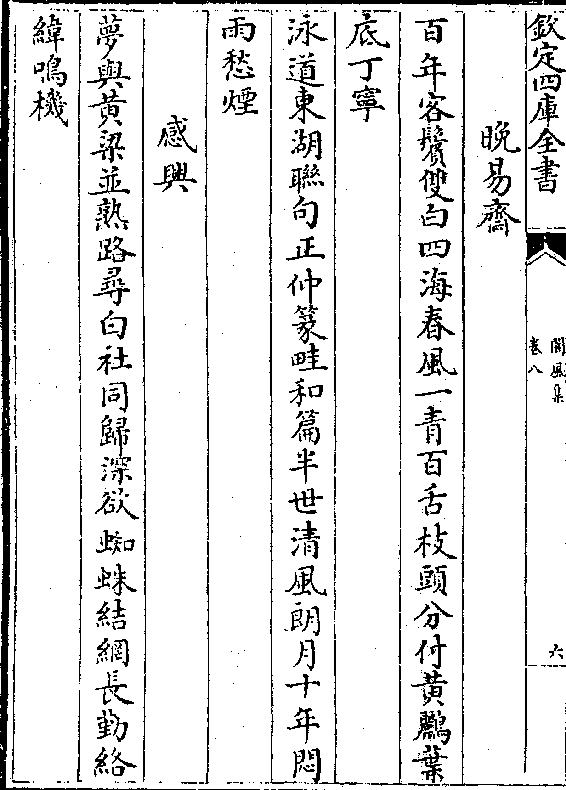 欽定四庫全書
閬風集
卷八
六
晚易齋
百年客鬢雙白四海春風一青百舌枝頭分付黄鸝葉
底丁寧
泳道東湖聯句正仲篆畦和篇半世清風朗月十年悶
雨愁煙
感興
夢與黄粱並熟路尋白社同歸深欲蜘蛛結網長勤絡
緯鳴機